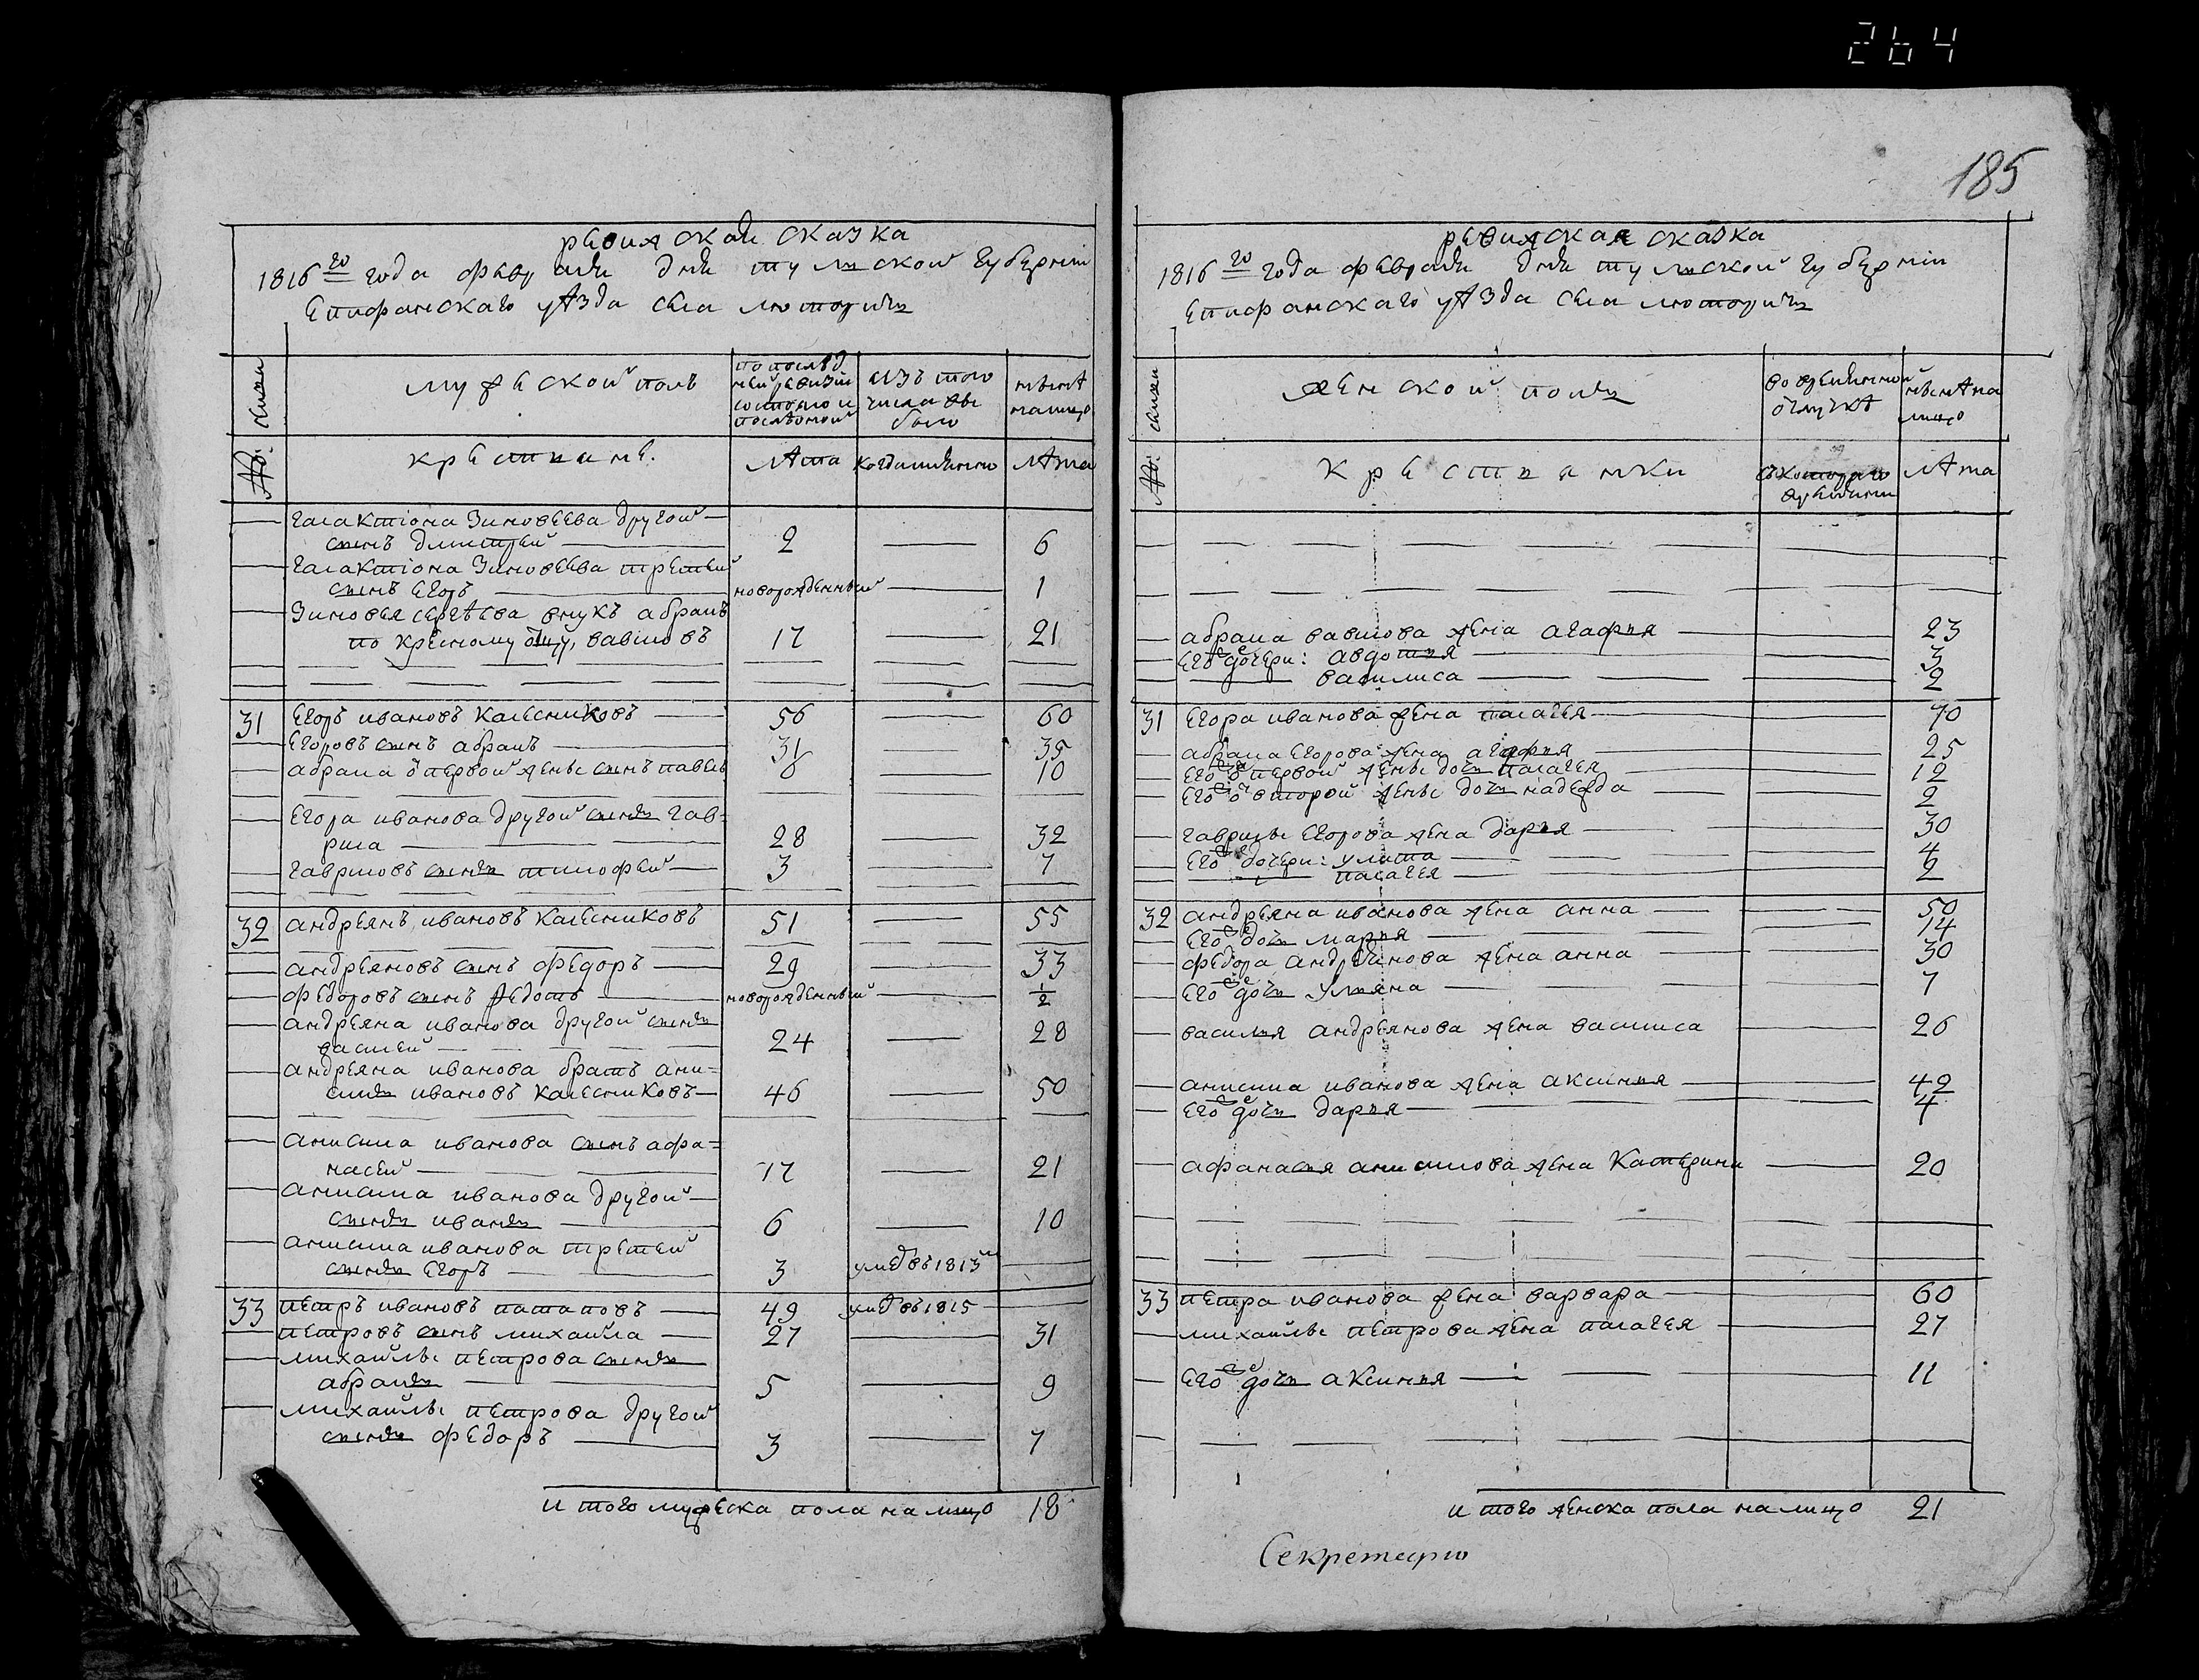 264
185
ревизская сказка
1816го года февраля дня тульской губернии
Епифанского уѣзда села люторичь
семьи
мужеской полъ
по послѣд
ней ревизіи
состояло и
послѣ оной
изъ того
числа вы
было
нынѣ
налицо
№:
крестьяне.
лѣта
когда имянно
лѣта
галактіона Зиновеева другой
сынъ дмитрей 2 6
галактіона Зиновеева третей
сынъ Егоръ новорожденный 1
Зиновья сергѣева внукъ абрамъ
по крѣсному отцу, вавиловъ 17 21
31 Егоръ ивановъ калесниковъ 56 60
Егоровъ сынъ абрамъ 31 35
абрама от первой жены сынъ павелъ 6 10
Егора иванова другой сынъ гав=
рила 28 32
гавриловъ сынъ тимофей 3 7
32 андреянъ ивановъ калесниковъ 51 55
андреяновъ сынъ федоръ 29 33
федоровъ сынъ федотъ новорожденный 1/2
андреяна иванова другой сынъ
василей 24 28
андреяна иванова братъ ани=
симъ ивановъ калесниковъ 46 50
анисима иванова сынъ афа=
насей 17 21
анисима иванова другой
сынъ иванъ 6 10
анисима иванова третей
сынъ Егоръ 3 умре въ 1813м
33 петръ ивановъ патаповъ 49 умре въ 1815
петровъ сынъ михайла 27 31
михайлы петрова сынъ
абрамъ 5 9
михайлы петрова другой
сынъ федоръ 3 7
итого мужеска пола налицо 18
ревизская сказка
1816го года февраля дня тульской губернии
Епифанского уѣзда села люторичь
семьи
женской полъ
во временной
отлучкѣ
нынѣ на
лицо
№:
крестьянки
съ котораго
времени
лѣта
абрама вавилова жена агафья 23
Его дочери: авдотья 3
василиса 2
31 Егора иванова жена палагея 70
абрама Егорова жена агафья 25
Его от первой жены дочь палагея 12
Его от второй жены дочь надежда 2
гаврилы Егорова жена дарья 30
Его дочери: улита 4
палагея 2
32 андреяна иванова жена анна 50
Его дочь марья 14
федора андреянова жена анна 30
Его дочь ульяна 7
василья андреянова жена василиса 26
анисима иванова жена аксинья 42
Его дочь дарья 4
афанасья анисимова жена катерина 20
33 петра иванова жена варвара 60
михайлы петрова жена палагея 27
Его дочь аксинья 11
итого женска пола налицо 21
Секретарю